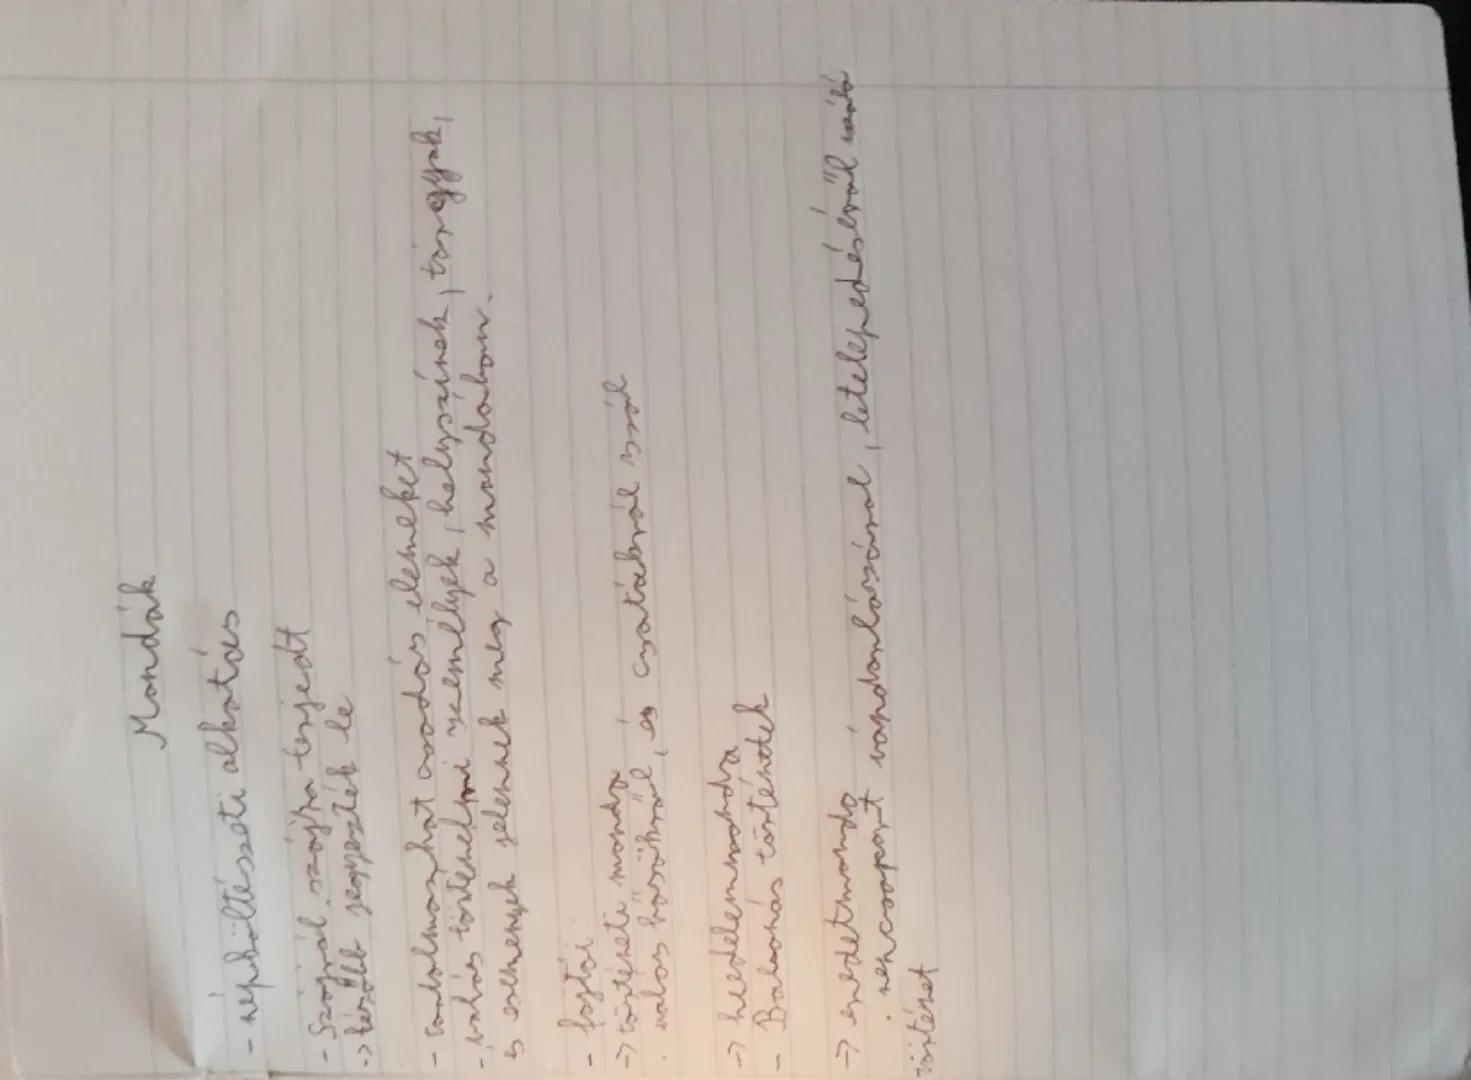 Mondák
- népköltészeti alkotás
- Szájról szájra terjedt
-> később jegyezték le
- tartalmazhat csodás elemeket
- valós történelmi személyek, helyszínek, tárgyak,
s események jelennek meg a mondában.
- fajtái
-> történeti monda
· valos hősökről, és csatákról szól
-> hiedelemmonda
- Babonás történetek
-> eredetmonda
· népcsoport vándorlásáról, letelepedéséről szóló
történet